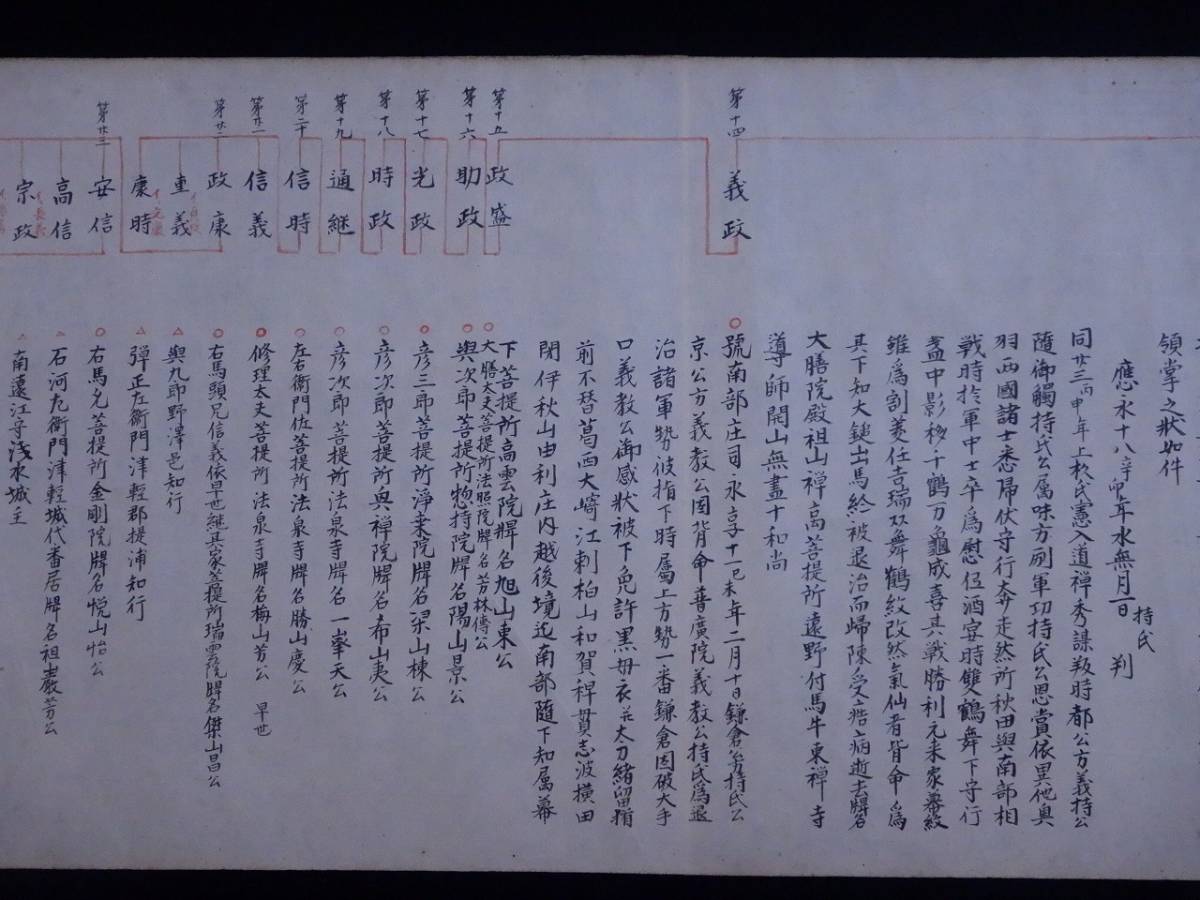 領掌之状如件
應永十八辛卯年水無月一日
持氏 判
同廿三丙申年上杦氏憲入道禅秀謀叛時都公方義持公
隨御觸持氏公属味方励軍功持氏公恩賞依異他奥
羽西國諸士悉帰伏守行奔走然所秋田與南部相
戦時於軍中士卒為慰伍酒宴時雙鶴舞下守行
盞中影移千鶴万龜成喜其戦勝利元来家幕紋
雖為割菱任吉瑞双舞鶴紋改然氣仙者背命為
其下知大鎚出馬終被退治而歸陳受疾病逝去牌名
大膳院殿祖山禅高菩提所遠野付馬牛東禅寺
導師開山無盡十和尚
第十四
義政
號南部庄司永享十一己未年二月十日鎌倉公方持氏公
京公方義教公因背命普廣院義教公持氏為退
治諸軍勢彼指下時属上方勢一番鎌倉因破大手
口義教公御感状被下免許黒母衣并太刀緒留指
前不替葛西大崎江刺柏山和賀稗貫志波横田
閉伊秋山由利庄内越後境迄南部隨下知属幕
下菩提所高雲院牌名旭山東公
第十五
政盛
大膳大夫菩提所法照院牌名芳林傳公
第十六
助政
與次郎菩提所惣持院牌名陽山景公
第十七
光政
彦三郎菩提所淨業院牌名梁山棟公
第十八
時政
彦次郎菩提所興禅院牌名希山夷公
第十九
通継
彦次郎菩提所法泉寺牌名一峯天公
第二十
信時
左右衛門佐菩提所法泉寺牌名勝山慶公
第廿一
信義
修理太夫菩提所法泉寺牌名梅山芳公 早世
第廿二
政康
右馬頭兄信義依早世継其家菩提所瑞雲院牌名傑山昌公
重義
與九郎野澤邑知行
康時
弾正左衛門津輕郡提浦知行
第廿三
安信
右馬允菩提所金剛院牌名悦山怡公
高信
石河左衛門津輕城代番居牌名祖巖芳公
宗政
南遠江守浅水城主